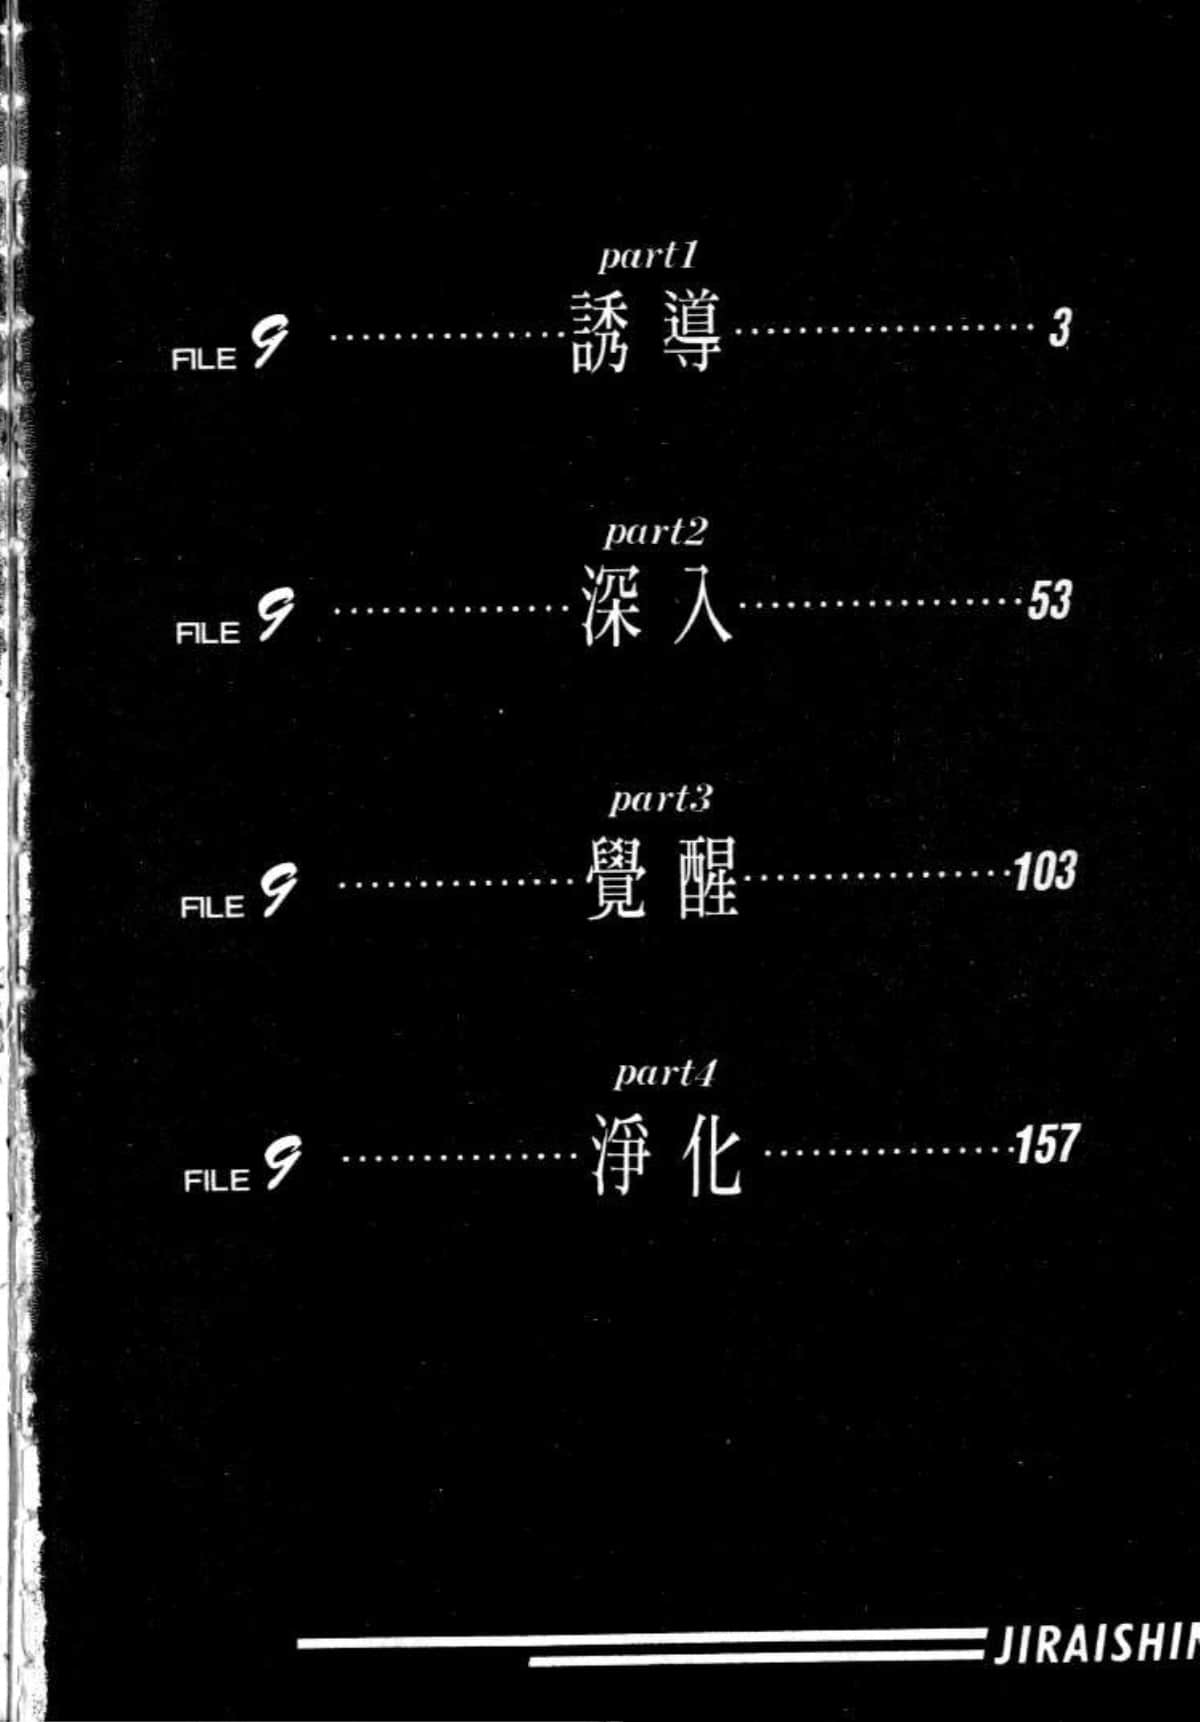 part1
FILE 9 ............... 誘導 ................... 3
part2
FILE 9 ............... 深入 .................. 53
part3
FILE 9 ............... 覺醒 ................. 103
part4
FILE 9 ............... 淨化 ................ 157
JIRAISHIN